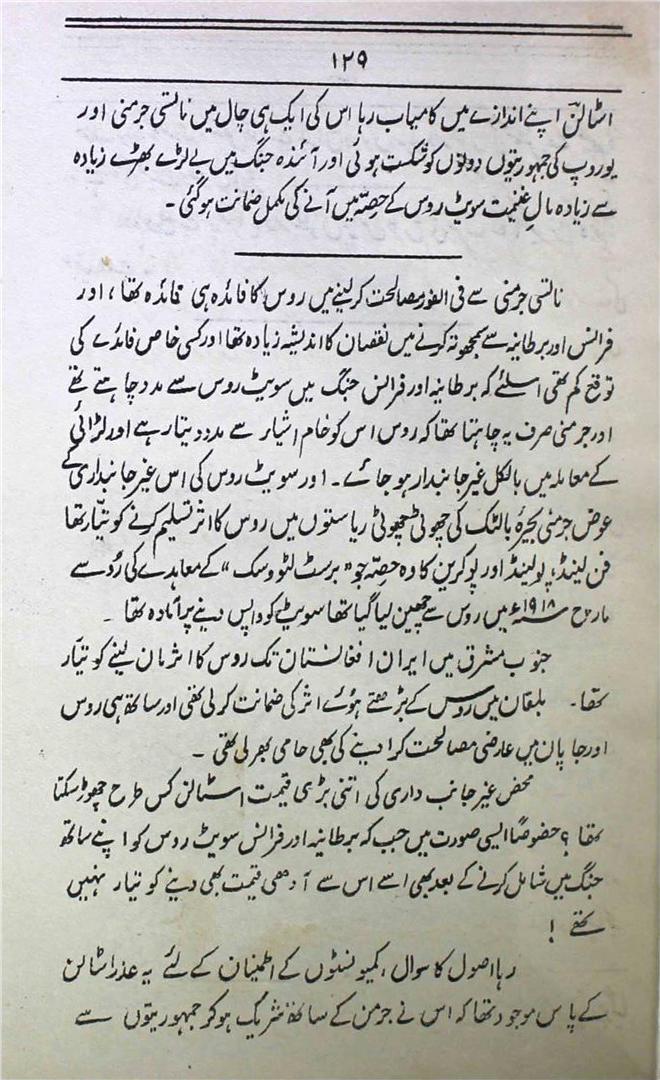 ۱۲۹
اسٹالن اپنے اندازے میں کامیاب رہا اس کی ایک ہی چال میں ناتسی جرمنی اور
یوروپ کی جمہوریتوں دونوں کو شکست ہوئی اور آئندہ جنگ میں بے لڑے بھڑے زیادہ
سے زیادہ مالِ غنیمت سویٹ روس کے حصّہ میں آنے کی مکمل ضمانت ہوگئی۔
ناتسی جرمنی سے فی الفور مصالحت کر لینے میں روس کا فائدہ ہی فائدہ تھا، اور
فرانس اور برطانیہ سے سمجھوتہ کرنے میں نقصان کا اندیشہ زیادہ تھا اور کسی خاص فائدے کی
توقع کم تھی اسلئے کہ برطانیہ اور فرانس جنگ میں سویٹ روس سے مدد چاہتے تھے
اور جرمنی صرف یہ چاہتا تھا کہ روس اس کو خام اشیار سے مدد دیتا رہے اور لڑائی
کے معاملہ میں بالکل غیر جانبدار ہو جائے۔ اور سویٹ روس کی اس غیر جانبداری کے
عوض جرمنی بحیرۂ بالٹک کی چھوٹی چھوٹی ریاستوں میں روس کا اثر تسلیم کرنے کو تیّار تھا
فن لینڈ، پولینڈ اور یوکرین کا وہ حصّہ جو "برسٹ لٹووسک" کے معاہدے کی رُو سے
مارچ ۱۹۱۸ء میں روس سے چھین لیا گیا تھا سویٹ کو واپس دینے پر آمادہ تھا۔
جنوب مشرق میں ایران افغانستان تک روس کا اثر مان لینے کو تیّار
تھا۔ بلقان میں روس کے بڑھتے ہوئے اثر کی ضمانت کر لی تھی اور ساتھ ہی روس
اور جاپان میں عارضی مصالحت کرا دینے کی بھی حامی بھر لی تھی۔
محض غیر جانب داری کی اتنی بڑی قیمت اسٹالن کس طرح چھوڑ سکتا
تھا؟ خصوصاً ایسی صورت میں جب کہ برطانیہ اور فرانس سویٹ روس کو اپنے ساتھ
جنگ میں شامل کرنے کے بعد بھی اسے اس سے آدھی قیمت بھی دینے کو تیار نہیں
تھے!
رہا اصول کا سوال، کمیونسٹوں کے اطمینان کے لئے یہ عذر اسٹالن
کے پاس موجود تھا کہ اس نے جرمن کے ساتھ شریک ہوکر جمہوریتوں سے